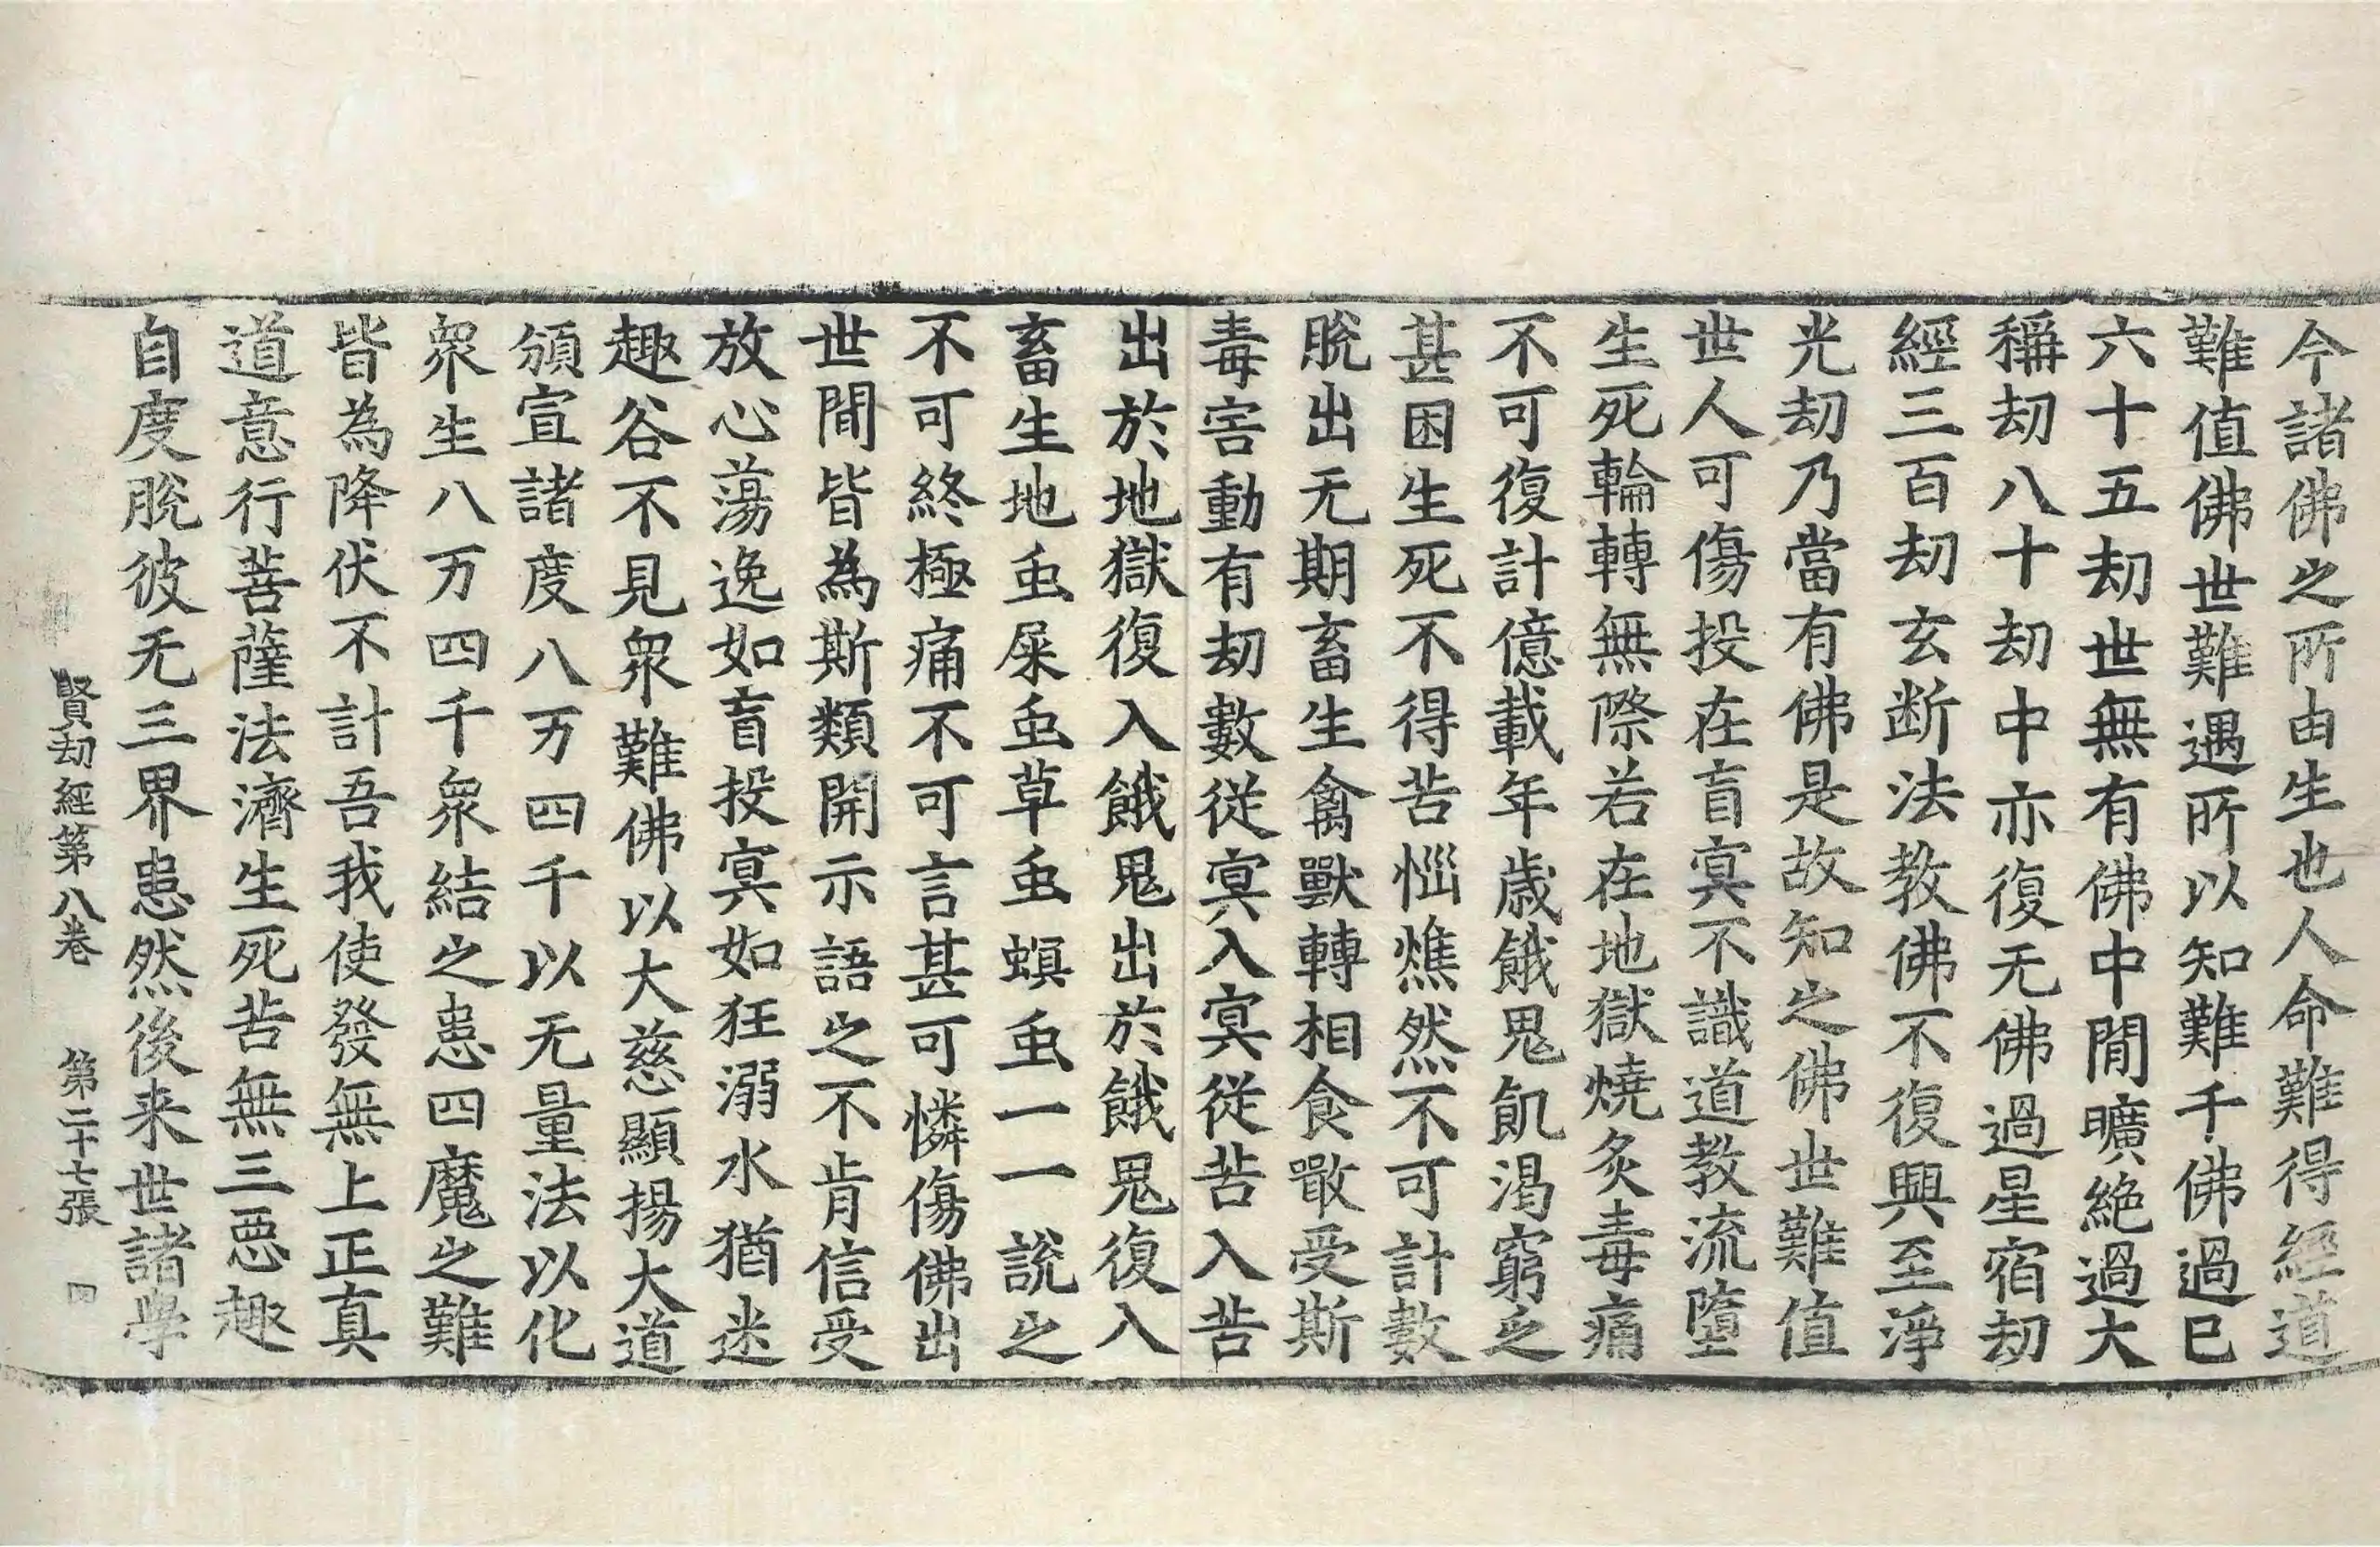 今諸佛之所由生也人命難得經道
難值佛世難遇所以知難千佛過已
六十五劫世無有佛中閒曠絶過大
稱劫八十劫中亦復无佛過星宿劫
經三百劫玄断法教佛不復興至淨
光劫乃當有佛是故知之佛世難值
世人可傷投在盲冥不識道教流墮
生死輪轉無際若在地獄燒炙毒痛
不可復計億載年歲餓鬼飢渴窮乏
甚困生死不得苦惱燋然不可計數
脫出无期畜生禽獸轉相食噉受斯
毒害動有劫數從冥入冥從苦入苦
出於地獄復入餓鬼出於餓鬼復入
畜生地䖝屎䖝草䖝螟䖝一一說之
不可終極痛不可言甚可憐傷佛出
世閒皆為斯類開示語之不肯信受
放心蕩逸如盲投冥如狂溺水猶迷
趣谷不見衆難佛以大慈顯揚大道
頒宣諸度八万四千以无量法以化
衆生八万四千衆結之患四魔之難
皆為降伏不計吾我使發無上正真
道意行菩薩法濟生死苦無三惡趣
自度脫彼无三界患然後来世諸學
賢劫經第八卷 第二十七張 四